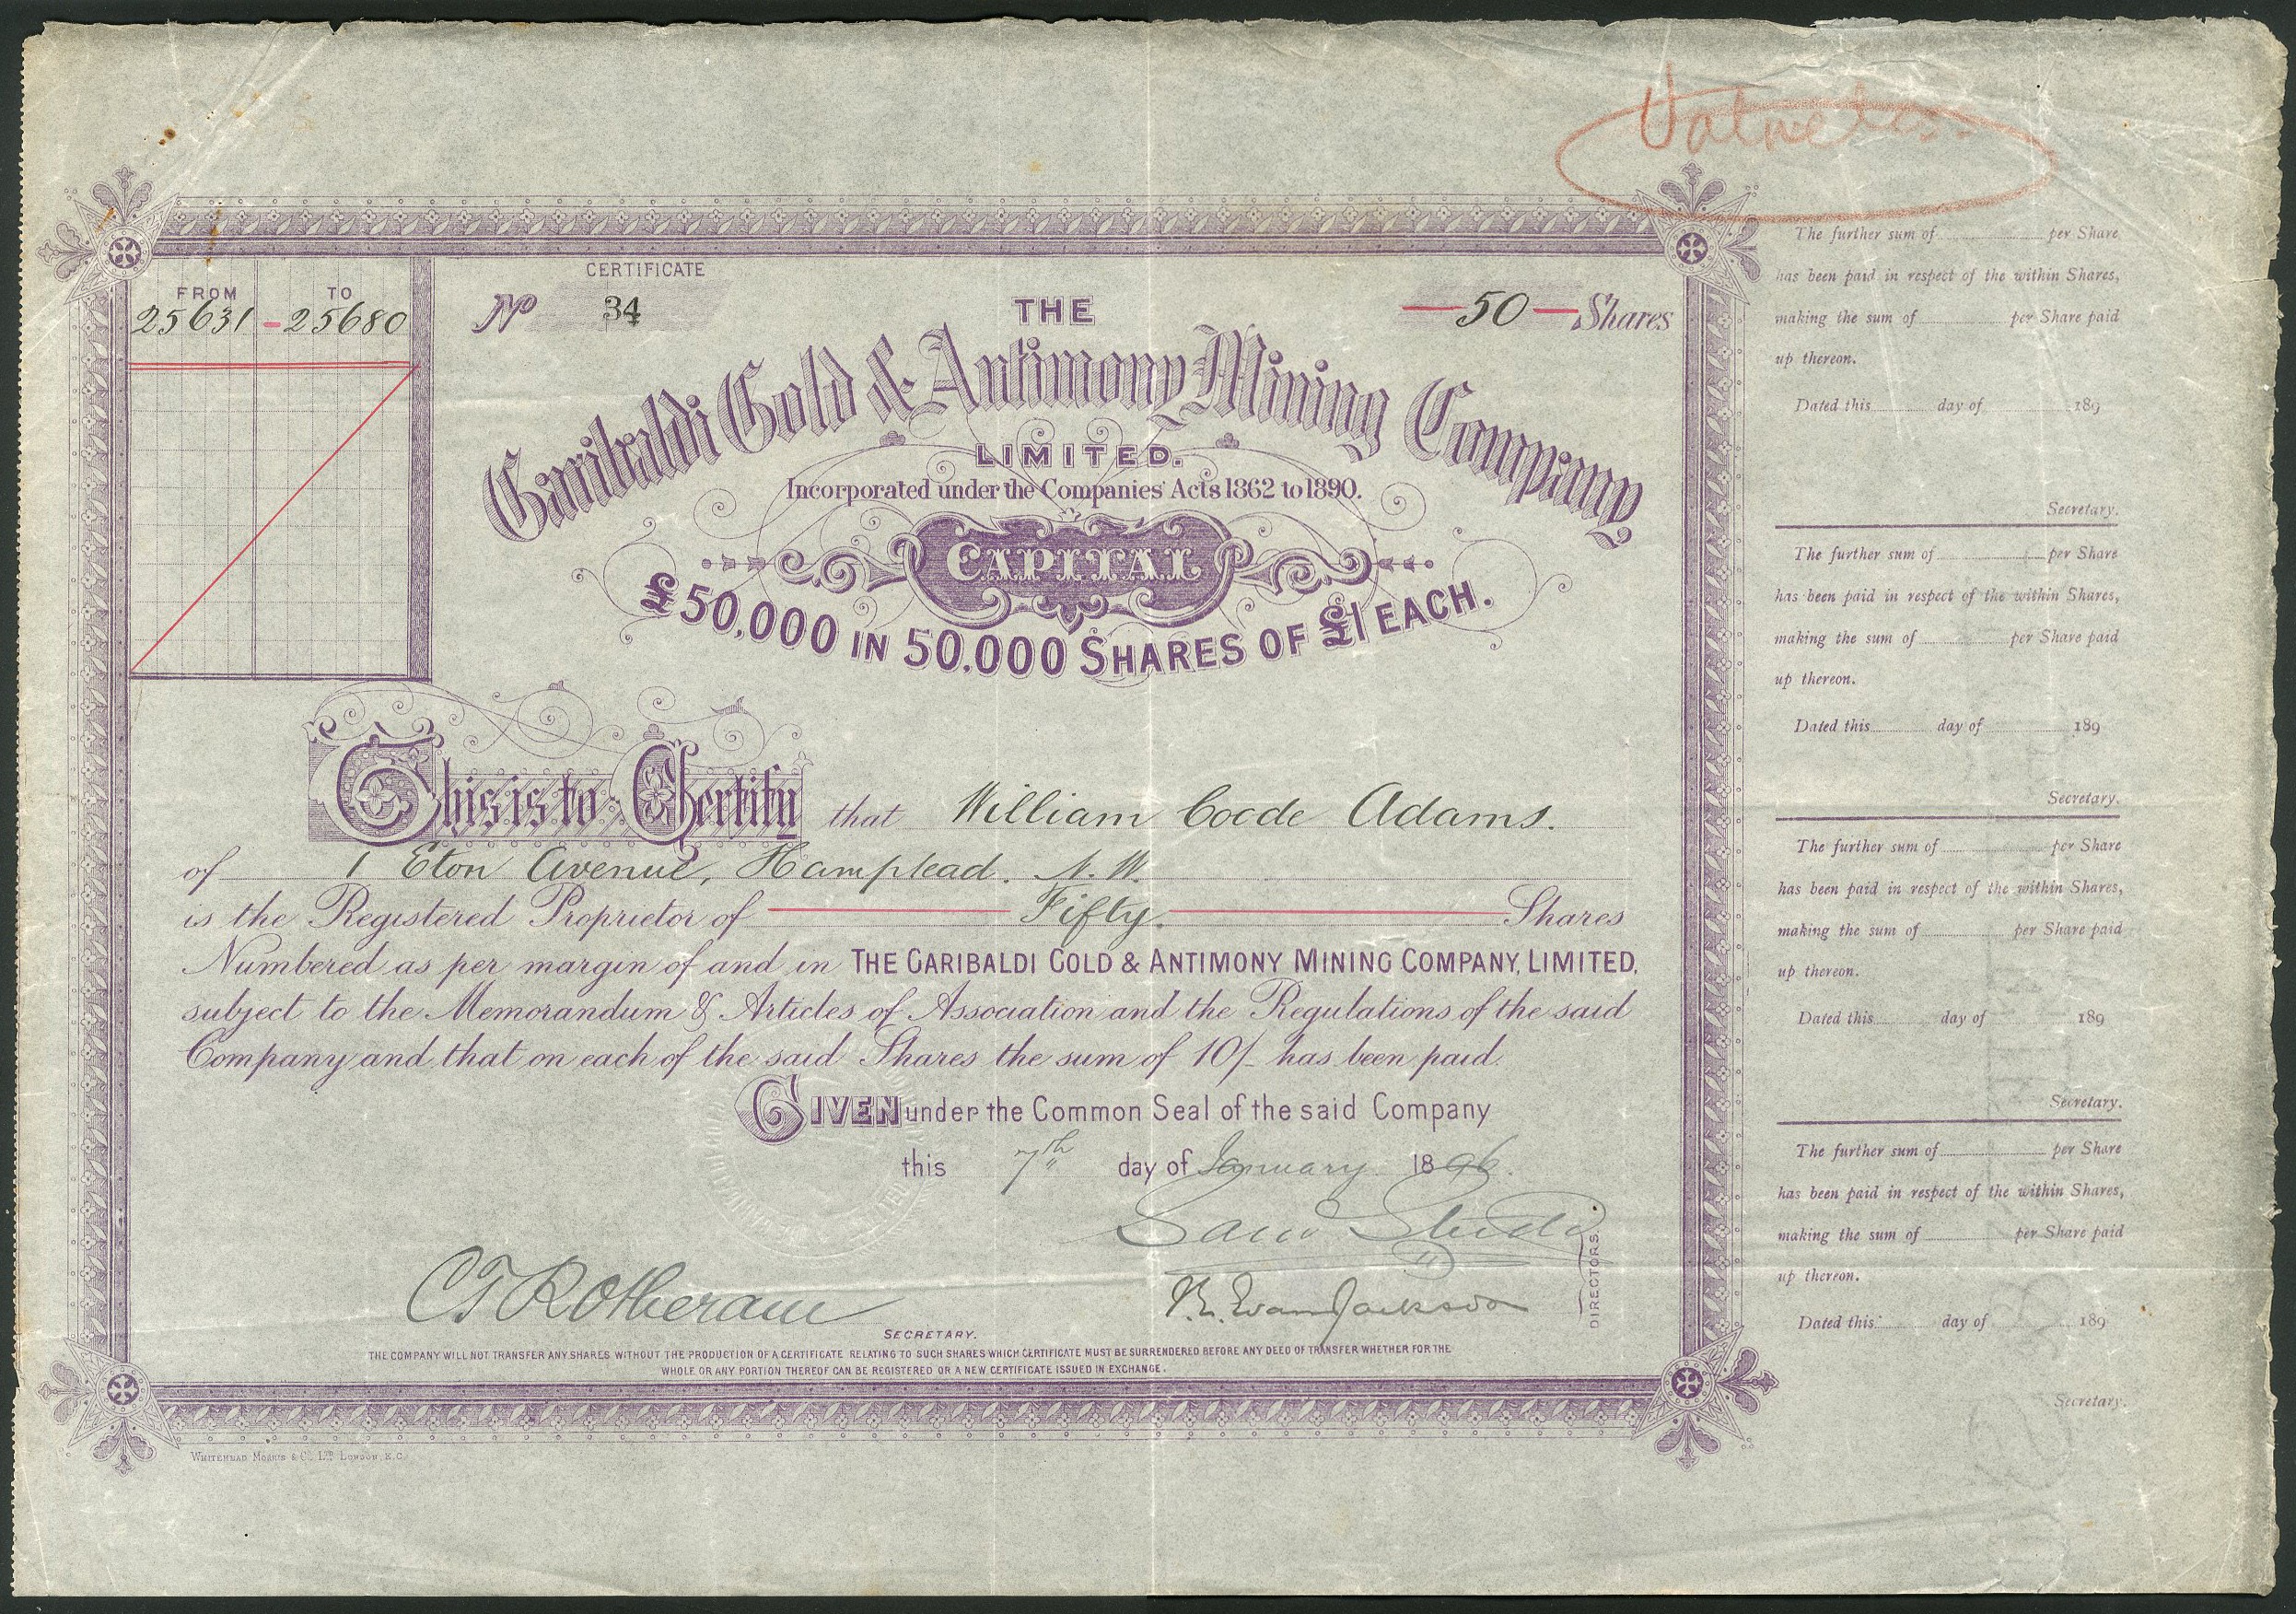 Valueless.
CERTIFICATE
FROM TO
25631 - 25680
No 34
50 Shares
THE
Garibaldi Gold & Antimony Mining Company
LIMITED.
Incorporated under the Companies' Acts 1862 to 1890.
CAPITAL
£50,000 IN 50,000 SHARES OF £1 EACH.
This is to Certify that William Coode Adams.
of 1 Eton Avenue, Hampstead. N.W.
is the Registered Proprietor of Fifty. Shares
Numbered as per margin of and in THE GARIBALDI GOLD & ANTIMONY MINING COMPANY, LIMITED,
subject to the Memorandum & Articles of Association and the Regulations of the said
Company and that on each of the said Shares the sum of 10/- has been paid.
GIVEN under the Common Seal of the said Company
this 7th day of January 1896.
C T Rotheram
SECRETARY.
Evan Jackson
DIRECTORS.
THE COMPANY WILL NOT TRANSFER ANY SHARES WITHOUT THE PRODUCTION OF A CERTIFICATE RELATING TO SUCH SHARES WHICH CERTIFICATE MUST BE SURRENDERED BEFORE ANY DEED OF TRANSFER WHETHER FOR THE
WHOLE OR ANY PORTION THEREOF CAN BE REGISTERED OR A NEW CERTIFICATE ISSUED IN EXCHANGE.
WHITEHEAD MORRIS & Co. LTD. LONDON, E.C.
The further sum of per Share
has been paid in respect of the within Shares,
making the sum of per Share paid
up thereon.
Dated this day of 189
Secretary.
The further sum of per Share
has been paid in respect of the within Shares,
making the sum of per Share paid
up thereon.
Dated this day of 189
Secretary.
The further sum of per Share
has been paid in respect of the within Shares,
making the sum of per Share paid
up thereon.
Dated this day of 189
Secretary.
The further sum of per Share
has been paid in respect of the within Shares,
making the sum of per Share paid
up thereon.
Dated this day of 189
Secretary.